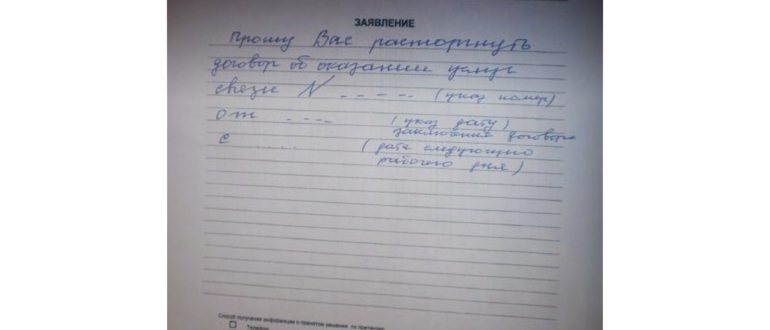 ЗАЯВЛЕНИЕ
Прошу Вас расторгнуть
договор об оказании услуг
связи N _ _ _ _ _ (указ номер)
от _ _ _ _ (указ дату)
заключения договора
с ..... (дата следующего
рабочего дня)
Способ получения информации о принятом решении по претензии:
Телефон